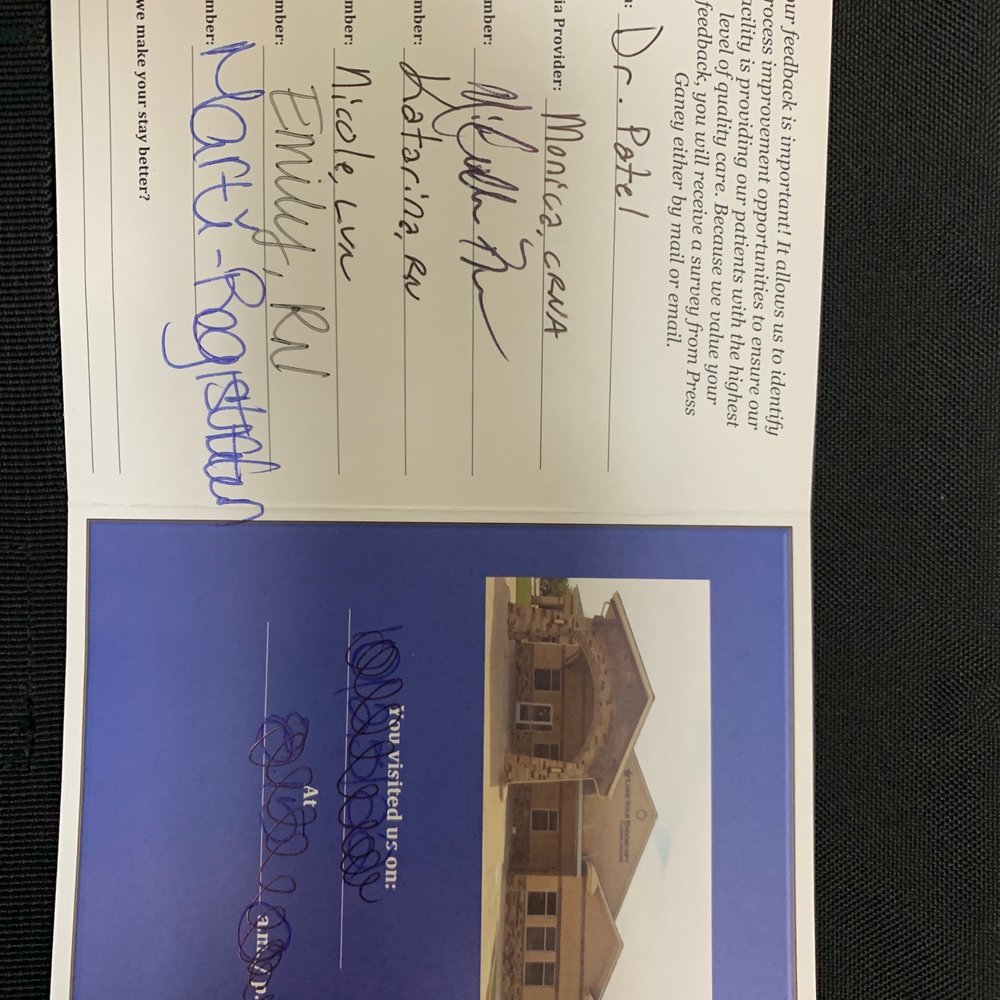 our feedback is important! It allows us to identify
process improvement opportunities to ensure our
facility is providing our patients with the highest
level of quality care. Because we value your
feedback, you will receive a survey from Press
Ganey either by mail or email.
n: Dr. Patel
ia Provider: Monica, CRNA
mber:
mber: Katarina, RN
mber: Nicole, LVN
mber: Emily, RN
mber: Marti - Registration
we make your stay better?
LONE STAR ENDOSCOPY
You visited us on:
At
a.m./p.